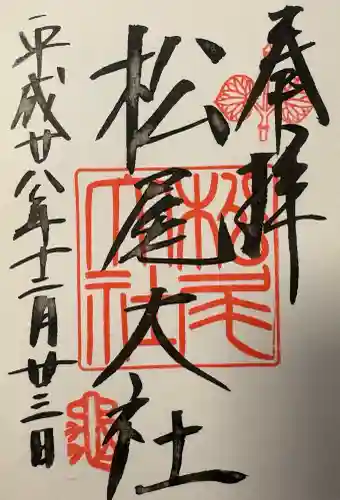 奉拝
松尾大社
平成廿八年十二月廿三日
松尾
大社